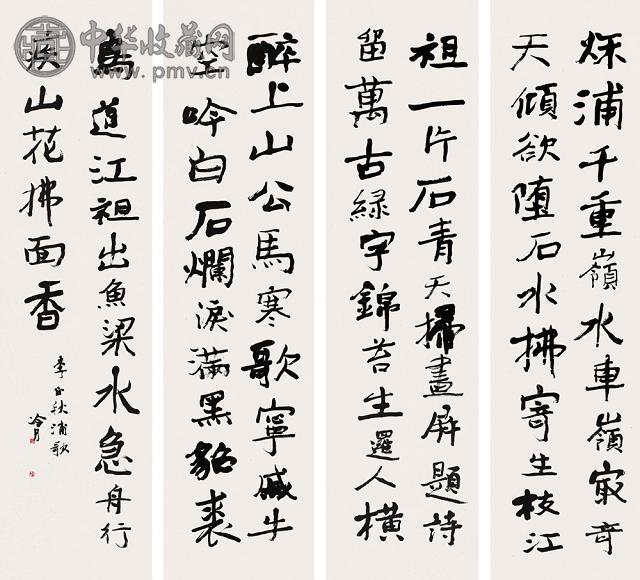 秌浦千重嶺水車嶺㝡奇
天傾欲墮石水拂寄生枝江
祖一片石青天掃畫屏題詩
留萬古綠字錦苔生邏人橫
醉上山公馬寒歌寧戚牛
空吟白石爛淚滿黑貂裘
鳥道江祖出魚梁水急舟行
疾山花拂面香
李白秋浦歌
冷月
中华收藏网
www.pmv.cn